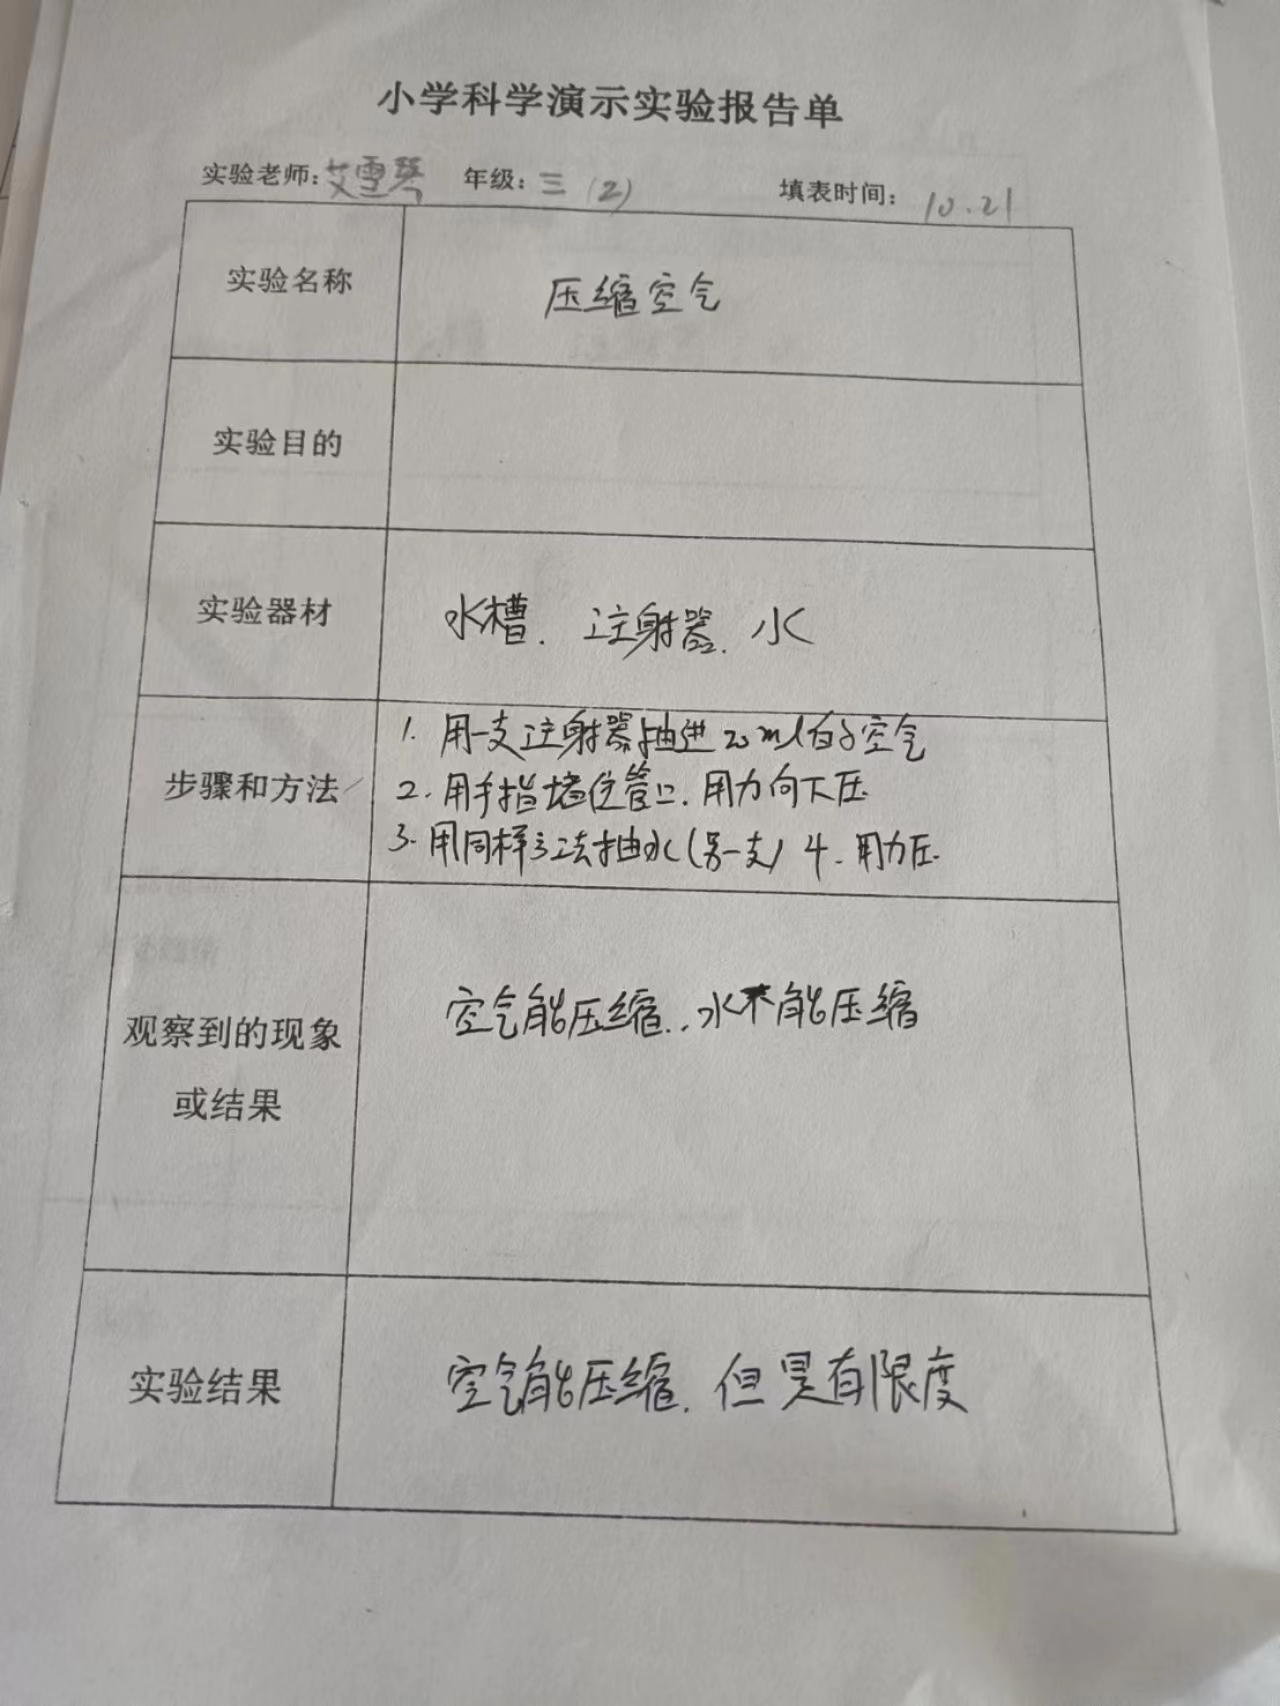 小学科学演示实验报告单
实验老师：艾雪琴 年级：三（2） 填表时间：10.21
实验名称 压缩空气
实验目的
实验器材 水槽．注射器．水
步骤和方法
1. 用一支注射器抽进20ml的空气
2. 用手指堵住管口．用力向下压
3. 用同样方法抽水（另一支）4. 用力压．
观察到的现象
或结果
空气能压缩．．水不能压缩
实验结果 空气能压缩．但是有限度